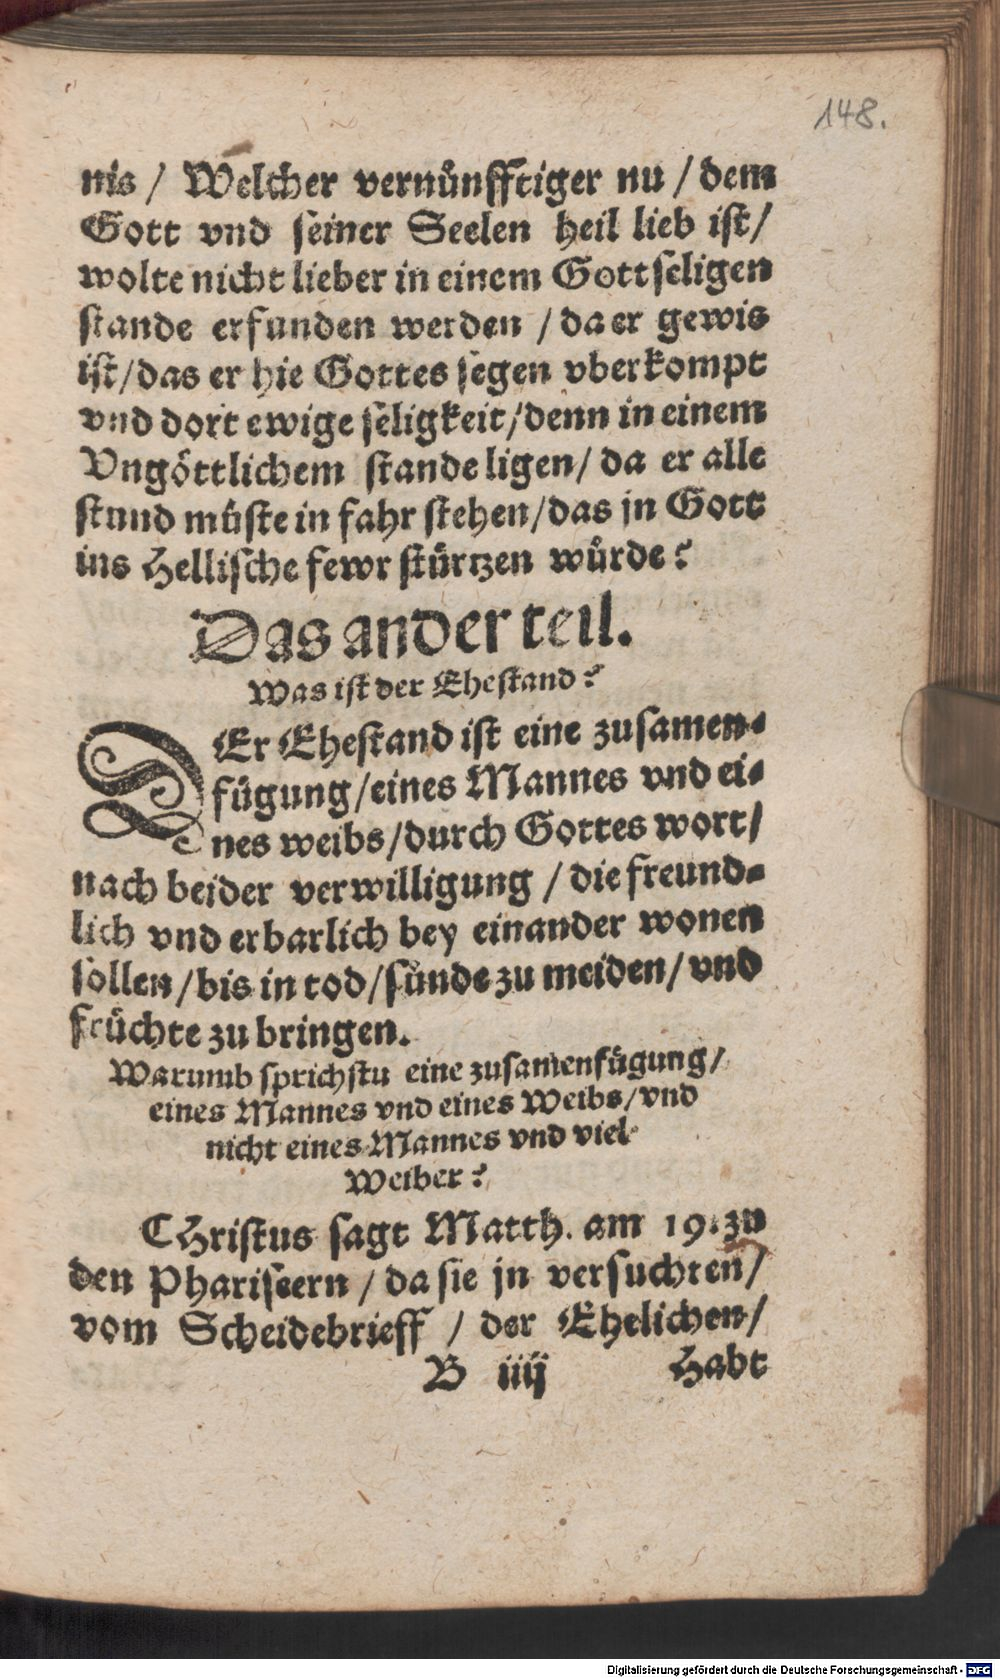 148.
nis / Welcher vernůnfftiger nu / dem
Gott vnd seiner Seelen heil lieb ist /
wolte nicht lieber in einem Gottseligen
stande erfunden werden / da er gewis
ist / das er hie Gottes segen vberkompt
vnd dort ewige seligkeit / denn in einem
Vngöttlichem stande ligen / da er alle
stund můste in fahr stehen / das jn Gott
ins Hellische fewr stůrtzen wůrde?
Das ander teil.
Was ist der Ehestand?
DEr Ehestand ist eine zusamen-
fůgung / eines Mannes vnd ei-
nes weibs / durch Gottes wort /
nach beider verwilligung / die freund-
lich vnd erbarlich bey einander wonen
sollen / bis in tod / sůnde zu meiden / vnd
frůchte zu bringen.
Warumb sprichstu eine zusamenfůgung /
eines Mannes vnd eines Weibs / vnd
nicht eines Mannes vnd viel
Weiber?
CHristus sagt Matth. am 19. zu
den Phariseern / da sie jn versuchten /
vom Scheidebrieff / der Ehelichen /
B iiij Habt
Digitalisierung gefördert durch die Deutsche Forschungsgemeinschaft - DFG